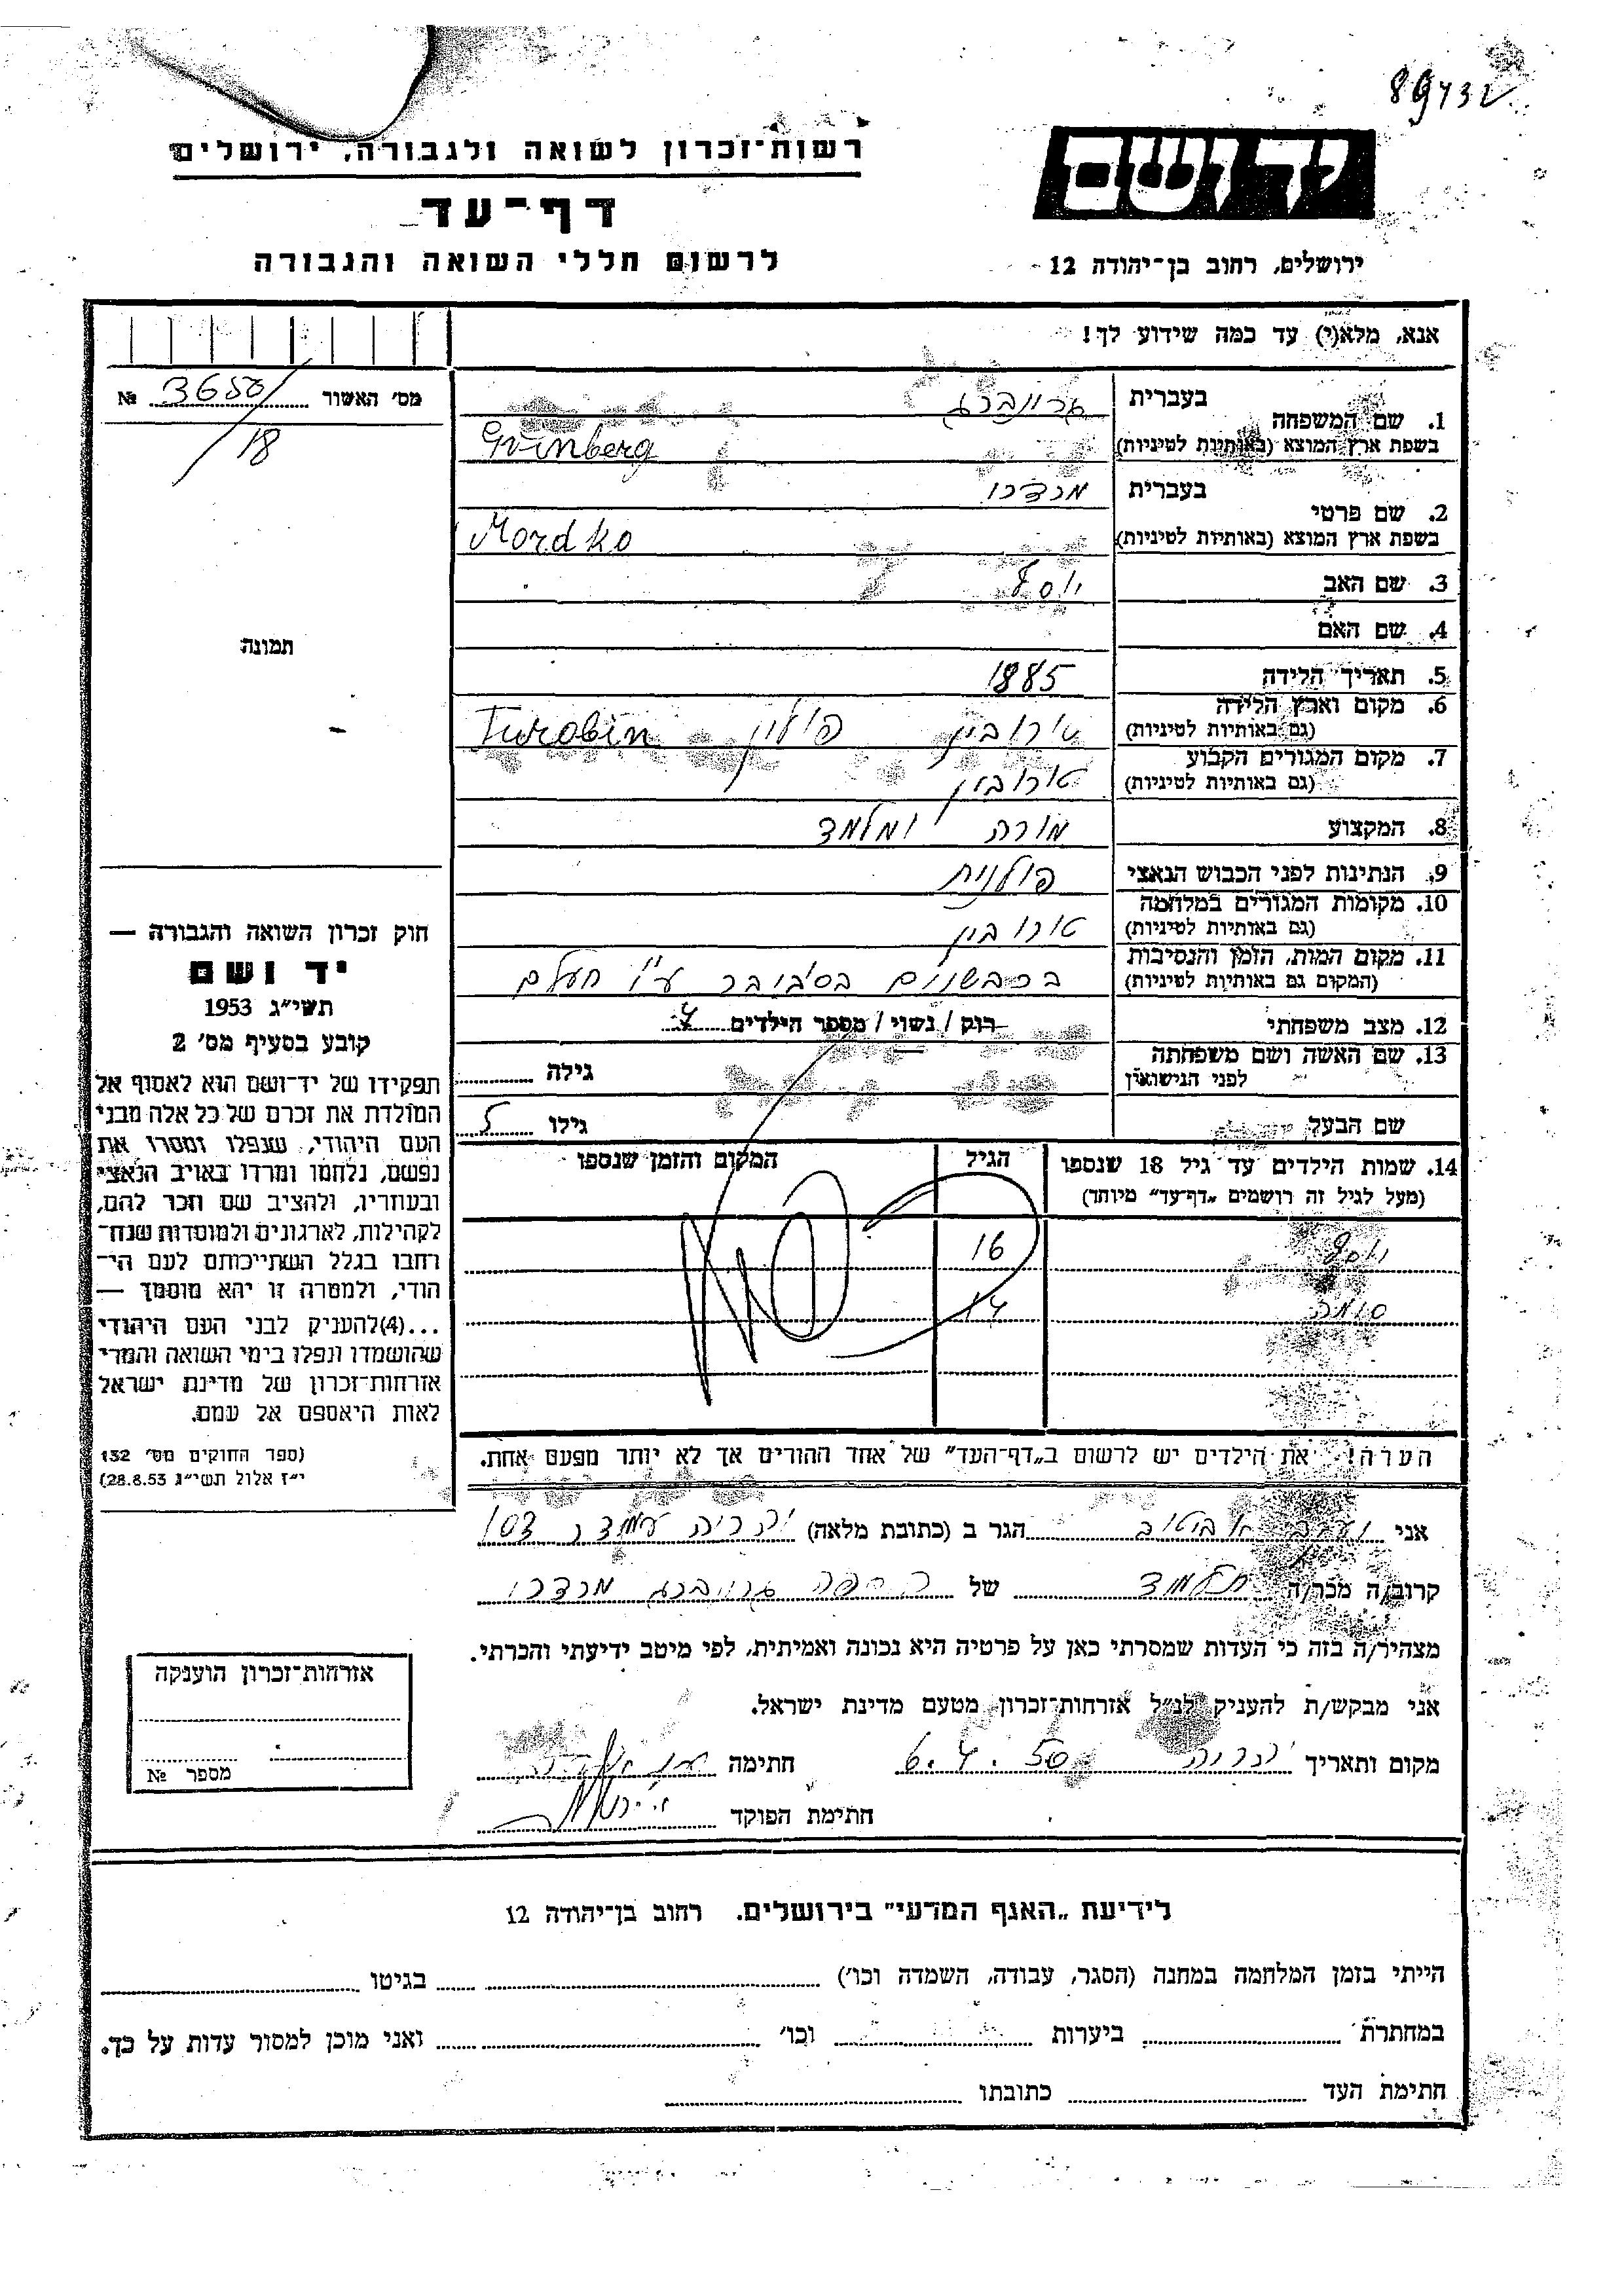 89432
רשות־זכרון לשואה ולגבורה, ירושלים
יד ושם
דף־עד
לרשום חללי השואה והגבורה
ירושלים, רחוב בן־יהודה 12
אנא, מלא(י) עד כמה שידוע לך!
מס׳ האשור 3650 №
18
1. שם המשפחה
בעברית גרינברג
בשפת ארץ המוצא (באותיות לטיניות) Grinberg
2. שם פרטי
בעברית מרדכי
בשפת ארץ המוצא (באותיות לטיניות) Mordko
3. שם האב יוסף
4. שם האם
תמונה
5. תאריך הלידה 1885
6. מקום וארץ הלידה
(גם באותיות לטיניות) טורובין פולין Turobin
7. מקום המגורים הקבוע
(גם באותיות לטיניות) טורובין
8. המקצוע מורה ומלמד
9. הנתינות לפני הכבוש הנאצי פולנית
10. מקומות המגורים במלחמה
(גם באותיות לטיניות) טורובין
11. מקום המות, הזמן והנסיבות
(המקום גם באותיות לטיניות) בכבשונים בסביבר ע״י חעלם
12. מצב משפחתי רוק / נשוי / מספר הילדים
13. שם האשה ושם משפחתה
לפני הנישואין גילה
שם הבעל גילו
14. שמות הילדים עד גיל 18 שנספו הגיל המקום והזמן שנספו
(מעל לגיל זה רושמים „דף־עד״ מיוחד)
יוסף 16
סימה 14
הערה! את הילדים יש לרשום ב„דף־העד״ של אחד ההורים אך לא יותר מפעם אחת.
חוק זכרון השואה והגבורה —
יד ושם
תשי״ג 1953
קובע בסעיף מס׳ 2
תפקידו של יד־ושם הוא לאסוף אל
המולדת את זכרם של כל אלה מבני
העם היהודי, שנפלו ומסרו את
נפשם, נלחמו ומרדו באויב הנאצי
ובעוזריו, ולהציב שם וזכר להם,
לקהילות, לארגונים ולמוסדות שנח־
רחבו בגלל השתייכותם לעם הי־
הודי, ולמטרה זו יהא מוסמך —
...(4) להעניק לבני העם היהודי
שהושמדו ונפלו בימי השואה והמרי
אזרחות־זכרון של מדינת ישראל
לאות היאספם אל עמם.
(ספר החוקים מס׳ 132
י״ז אלול תשי״ג 28.8.53)
אני הגר ב (כתובת מלאה) 103
קרוב/ה מכר/ה תלמיד של גרינברג מרדכי
מצהיר/ה בזה כי העדות שמסרתי כאן על פרטיה היא נכונה ואמיתית, לפי מיטב ידיעתי והכרתי.
אני מבקש/ת להעניק לנ״ל אזרחות־זכרון מטעם מדינת ישראל.
מקום ותאריך חתימה
חתימת הפוקד
אזרחות־זכרון הוענקה
מספר №
לידיעת „האגף המדעי״ בירושלים. רחוב בן־יהודה 12
הייתי בזמן המלחמה במחנה (הסגר, עבודה, השמדה וכו׳) בגיטו
במחתרת ביערות וכו׳ ואני מוכן למסור עדות על כך.
חתימת העד כתובתו